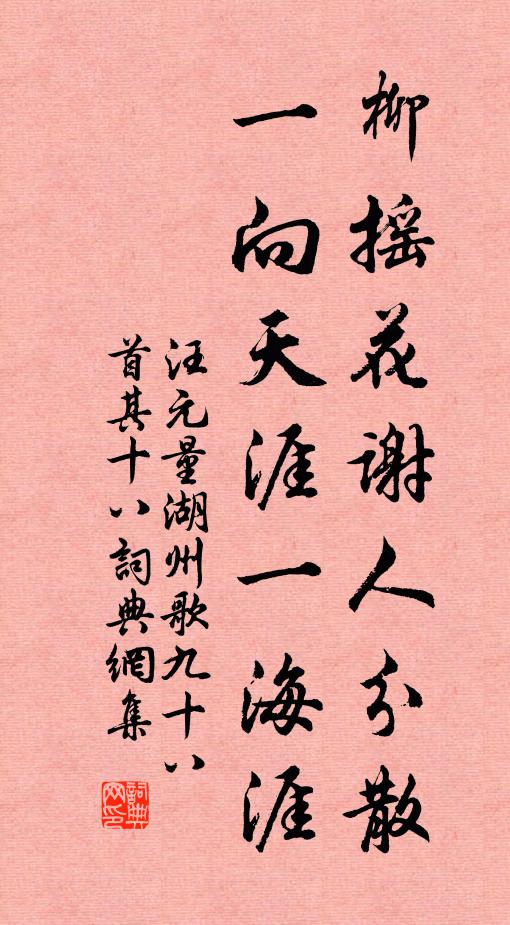 柳摇花谢人分散
一向天涯一海涯
汪元量湖州歌九十八
首其十八詞典網集
詞典网印